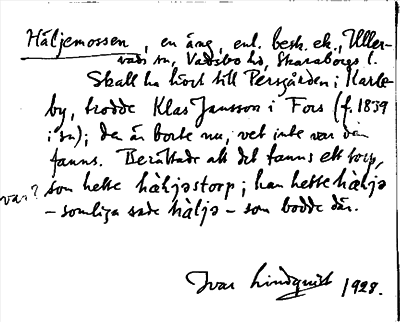 Häljemossen, en äng, enl. besk. ek., Uller-
vads sn, Vadsbo hd, Skaraborgs l.
Skall ha hört till Persgården i Karle-
by, trodde Klas Jansson i Fors (f. 1839
i sn); den är borta nu, vet inte var den
fanns. Berättade att det fanns ett torp,
som hette hàljastorp; han hette hàlja
var?
– somliga sade hàlje – som bodde där.
Ivar Lindquist 1928.